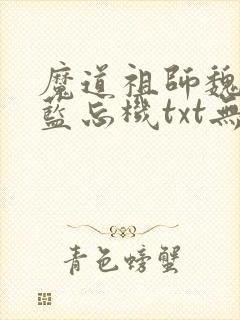 魔道祖師魏
藍忘機txt無
青色螃蟹